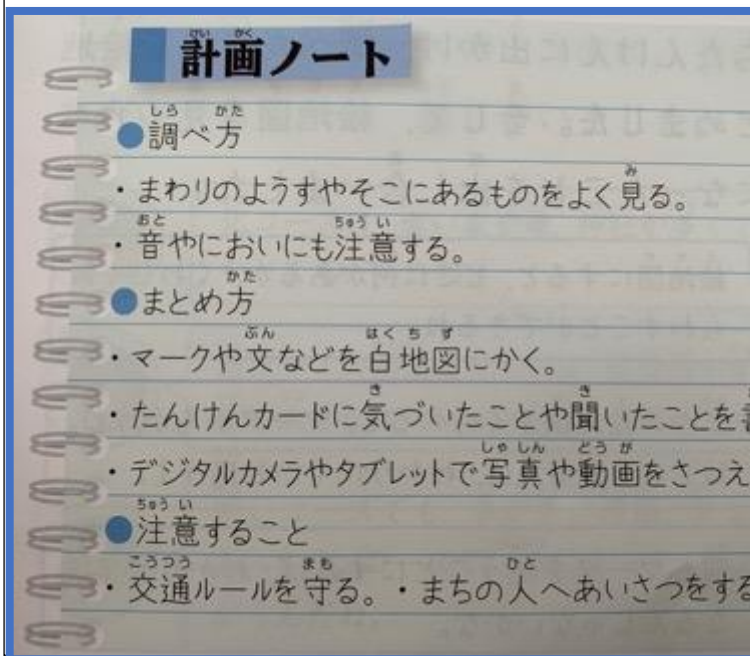 計画ノート
●調べ方
・まわりのようすやそこにあるものをよく見る。
・音やにおいにも注意する。
●まとめ方
・マークや文などを白地図にかく。
・たんけんカードに気づいたことや聞いたことを
・デジタルカメラやタブレットで写真や動画をさつえ
●注意すること
・交通ルールを守る。・まちの人へあいさつをする